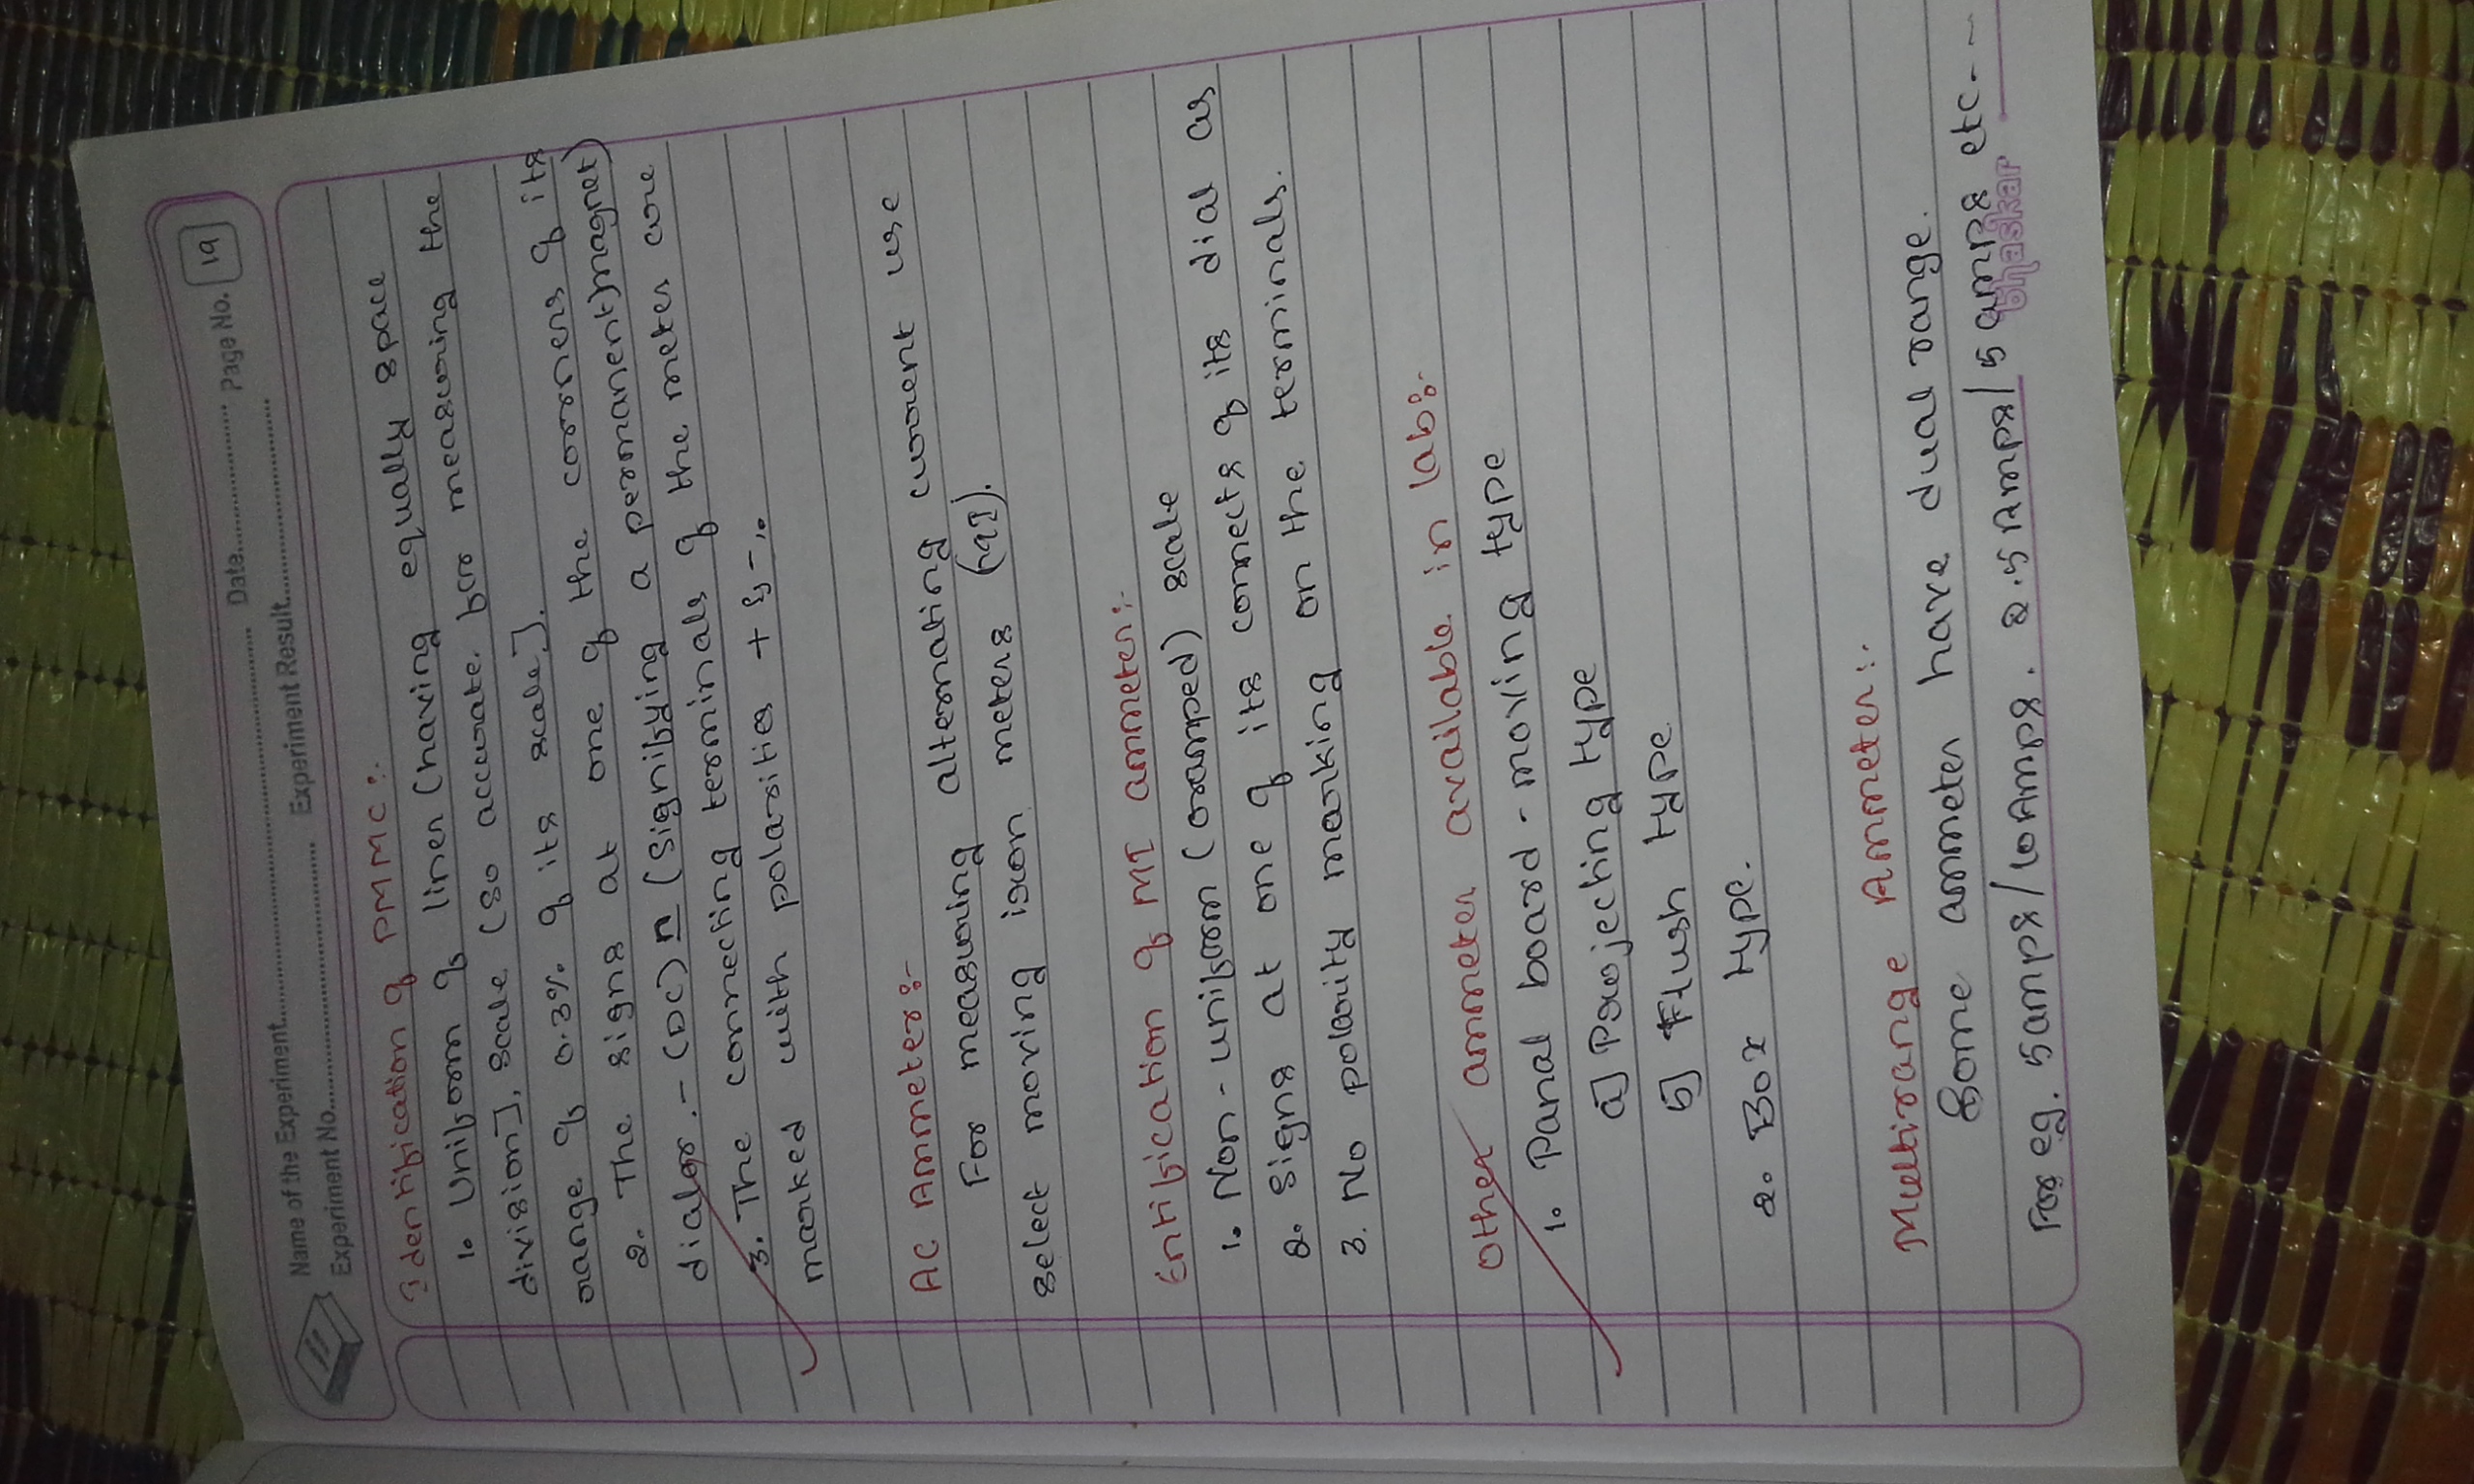 Name of the Experiment.............................. Date.................. Page No. 19
Experiment No................................ Experiment Result..........................
Identification of PMMC :-
1. Uniform of liner (having equally space
division], scale (so accurate for measuring the
range of 0.3%. of its scale].
2. The signs at one of the corners of its
dialer.- (DC) n (signifying a permanent) magnet)
3. The connecting terminals of the meter are
marked with polarities + & -..
AC Ammeter:-
For measuring alternating current use
select moving iron meters (
Entification of MI ammeter:-
1. Non-uniform (cramped) scale
2. Signs at one of its connects of its dial as
3. No polarity marking on the terminals.
Other ammeter available in lab:-
1. Panal board - moving type
a] Projecting type
b] Flush type
2. Box type.
Multirange Ammeter:-
Some ammeter have dual range.
For eg. 5amps/10Amps. 2.5 Amps/5 amps etc---
Bhaskar